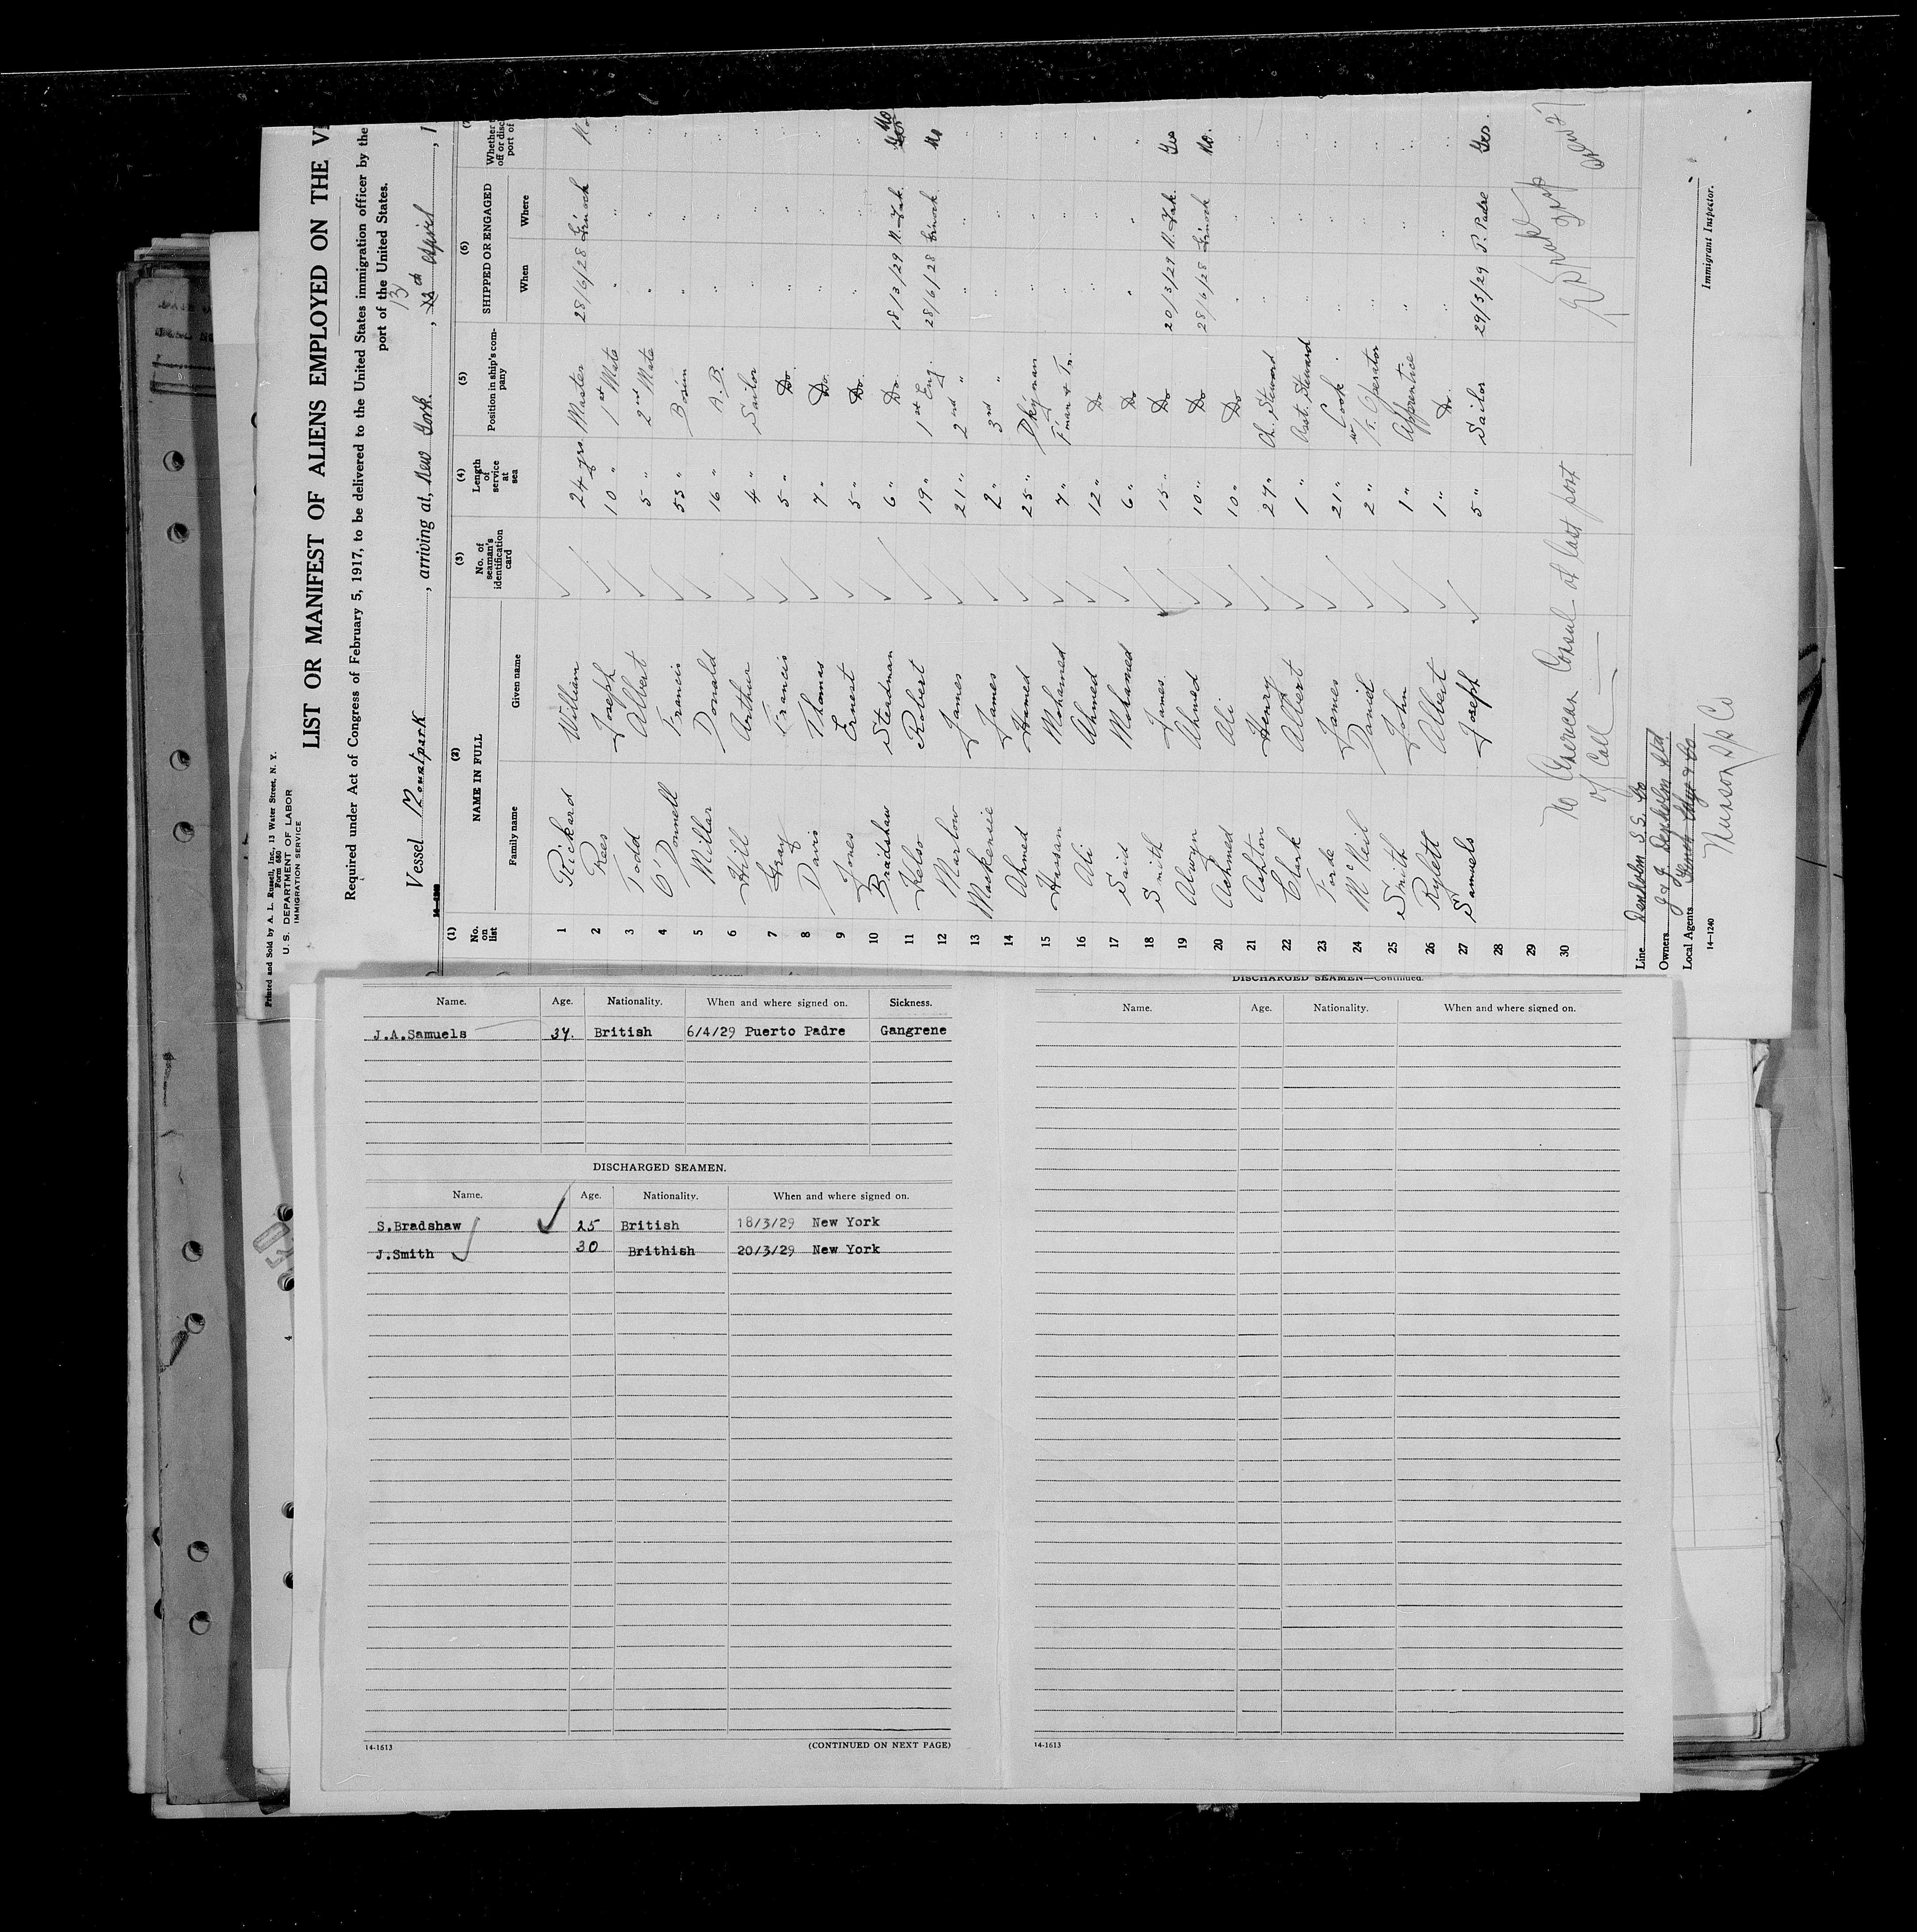 Printed and Sold by A. L. Russell, Inc., 13 Water Street, N. Y.
Form 680
U. S. DEPARTMENT OF LABOR
IMMIGRATION SERVICE
LIST OR MANIFEST OF ALIENS EMPLOYED ON THE
Required under Act of Congress of February 5, 1917, to be delivered to the United States immigration officer by the
port of the United States.
13
Vessel , arriving at, New York. , April , 1
(1) (2) (3) (4) (5) (6)
No. on list NAME IN FULL No. of seaman's identification card Length of service at sea Position in ship's company SHIPPED OR ENGAGED Whether
off or disc
port of
Family name Given name When Where
1 Rickard William 24 yrs Master 28/6/28 No
2 Rees Joseph 10 " 1st Mate " " "
3 Todd Albert 5 " 2nd Mate " " "
4 O'Donnell Francis 53 " Bosun " " "
5 Millar Donald 16 " A.B. " " "
6 Hill Arthur 4 " Sailor " " "
7 Gray Francis 5 " Do. " " "
8 Davis Thomas 7 " Do. " " "
9 Jones Ernest 5 " Do. " " "
10 Bradshaw Sterdman 6 " Do. 18/3/29 N. Yk. Yes No
11 Kelso Robert 19 " 1st Eng. 28/6/28 No
12 Marlow James 21 " 2nd " " " "
13 Mackenzie James 2 " 3rd " " " "
14 Ahmed Hamed 25 " Dkyman " " "
15 Hassan Mohamed 7 " F'man & Tr. " " "
16 Ali Ahmed 12 " Do " " "
17 Said Mohamed 6 " Do " " "
18 Smith James 15 " Do 20/3/29 N. Yk. Yes
19 Alwayn Ahmed 10 " Do 28/6/28 No.
20 Achmed Ali 10 " Do " " "
21 Ashton Henry 27 " Ch. Steward " " "
22 Clark Albert 1 " Asst. Steward " " "
23 Forde James 21 " Cook " " "
24 McNeil Daniel 2 " W/T. Operator " " "
25 Smith John 1 " Apprentice " " "
26 Rylett Albert 1 " Do. " " "
27 Samuels Joseph 5 " Sailor 29/3/29 P. Padre Yes.
28
29
30
No American Consul at last port
of Call
Line Denholm S.S. Co
Owners J & J Denholm Ltd
Local Agents
Munson S/S Co
14—1240
Immigrant Inspector.
Name. Age. Nationality. When and where signed on. Sickness.
J.A.Samuels 34. British 6/4/29 Puerto Padre Gangrene
DISCHARGED SEAMEN.
Name. Age. Nationality. When and where signed on.
S.Bradshaw 25 British 18/3/29 New York
J.Smith 30 Brithish 20/3/29 New York
14-1613 (CONTINUED ON NEXT PAGE)
DISCHARGED SEAMEN—Continued.
Name. Age. Nationality. When and where signed on.
14-1613